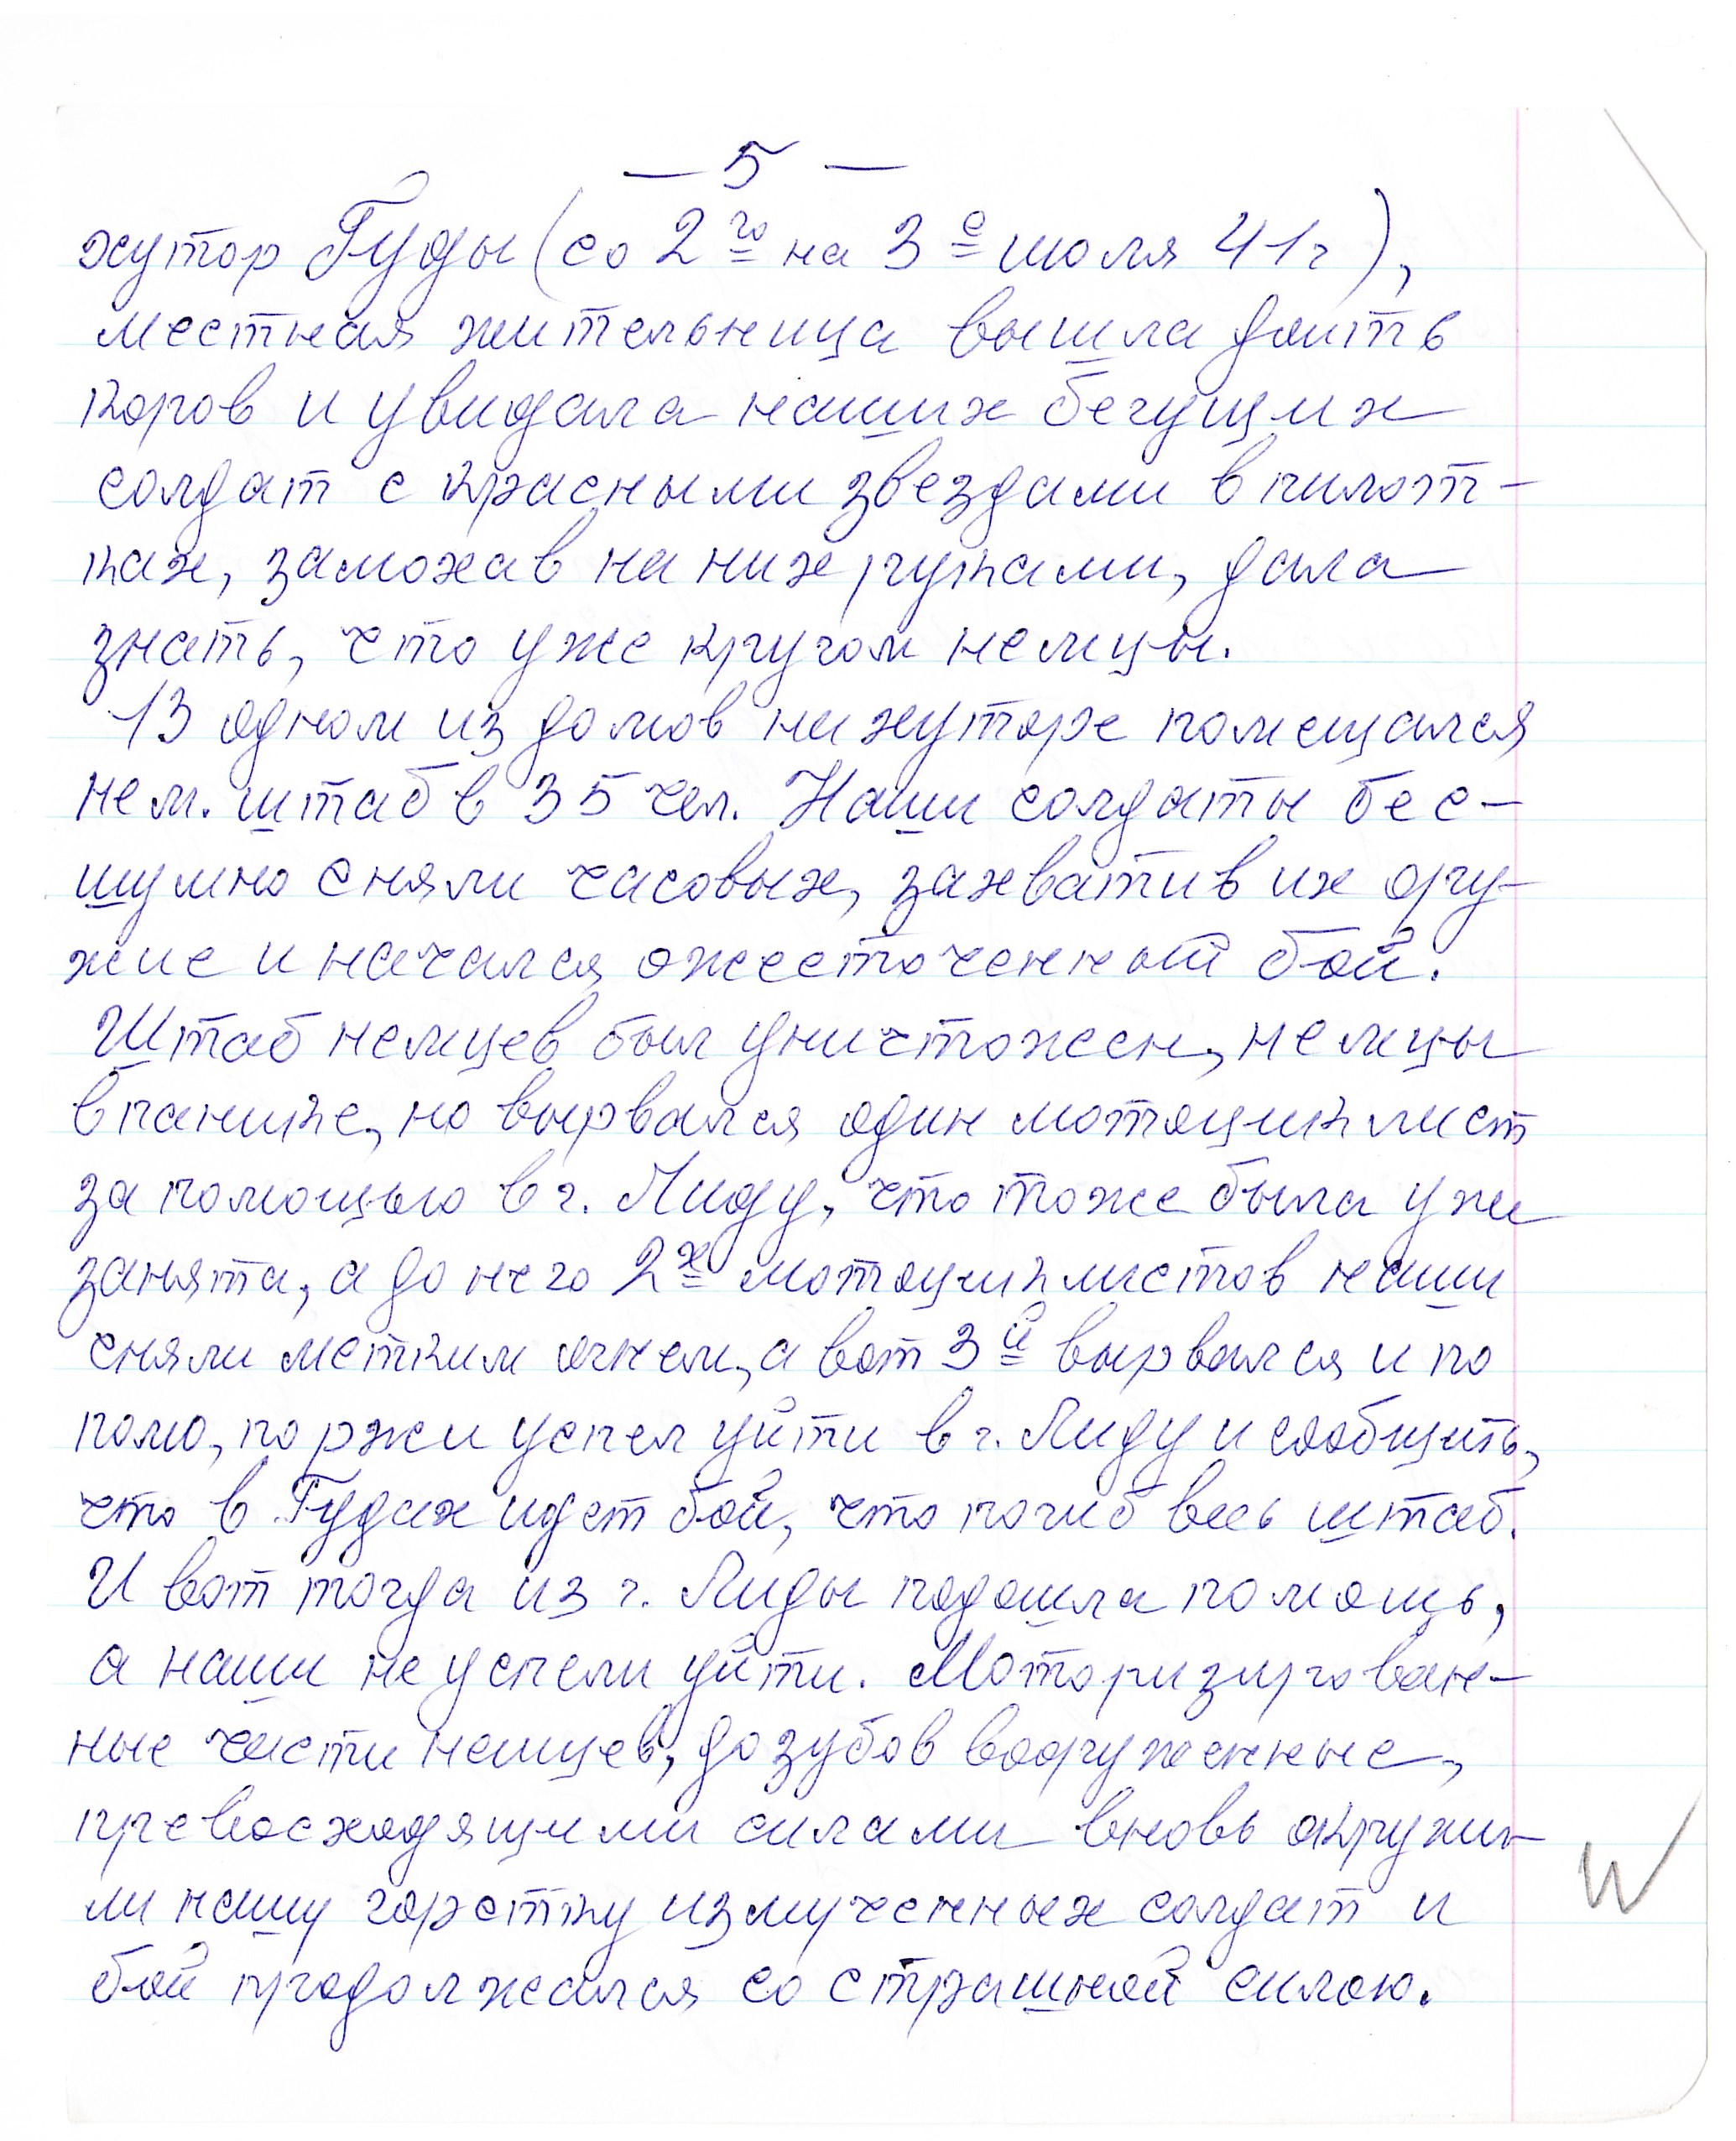 — 5 —
хутор Гуды (со 2го на 3е июля 41г),
местная жительница вышла доить
коров и увидала наших бегущих
солдат с красными звездами в пилот-
ках, замохав на них руками, дала
знать, что уже кругом немцы.
В одном из домов на хуторе помещался
нем. штаб в 35 чел. Наши солдаты бес-
шумно сняли часовых, захватив их ору-
жие и начался ожесточенный бой.
Штаб немцев был уничтожен, немцы
в панике, но вырвался один мотоциклист
за помощью в г. Лиду, что тоже была уже
занята, а до него 2х мотоциклистов наши
сняли метким огнем, а вот 3й вырвался и по
полю, по ржи успел уйти в г. Лиду и сообщить,
что в Гудах идет бой, что погиб весь штаб.
И вот тогда из г. Лиды подошла помощь,
а наши не успели уйти. Моторизирован-
ные части немцев, до зубов вооруженные,
превосходящими силами вновь окружи-
ли нашу горстку измученных солдат и
бой продолжался со страшной силою.